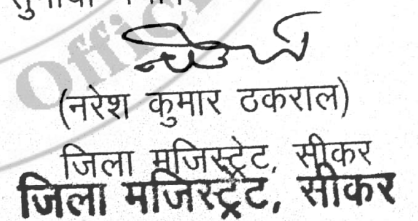 Offic
(नरेश कुमार ठकराल)
जिला मजिस्ट्रेट, सीकर
जिला मजिस्ट्रेट, सीकर